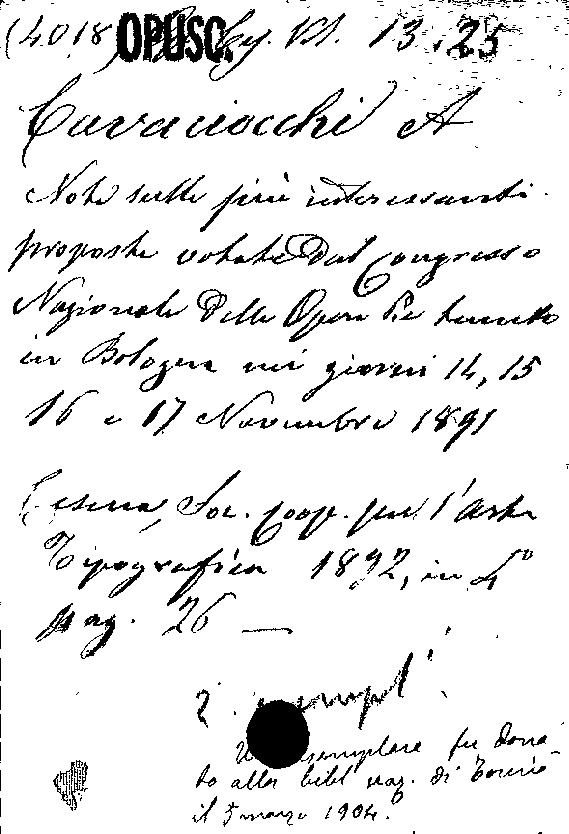 (4018) OPUSC. 13.25
Cavaciocchi A
Note sulle più interessanti
proposte votate dal Congresso
Nazionale delle Opere Pie tenuto
in Bologna nei giorni 14, 15
16 e 17 Novembre 1891
Cesena, Soc. Coop. per l'Arte
Tipografica 1892, in 4°
pag. 26 —
2. esempl.
Un esemplare fu dona-
to alla bibl naz. di Torino
il 5 marzo 1904.